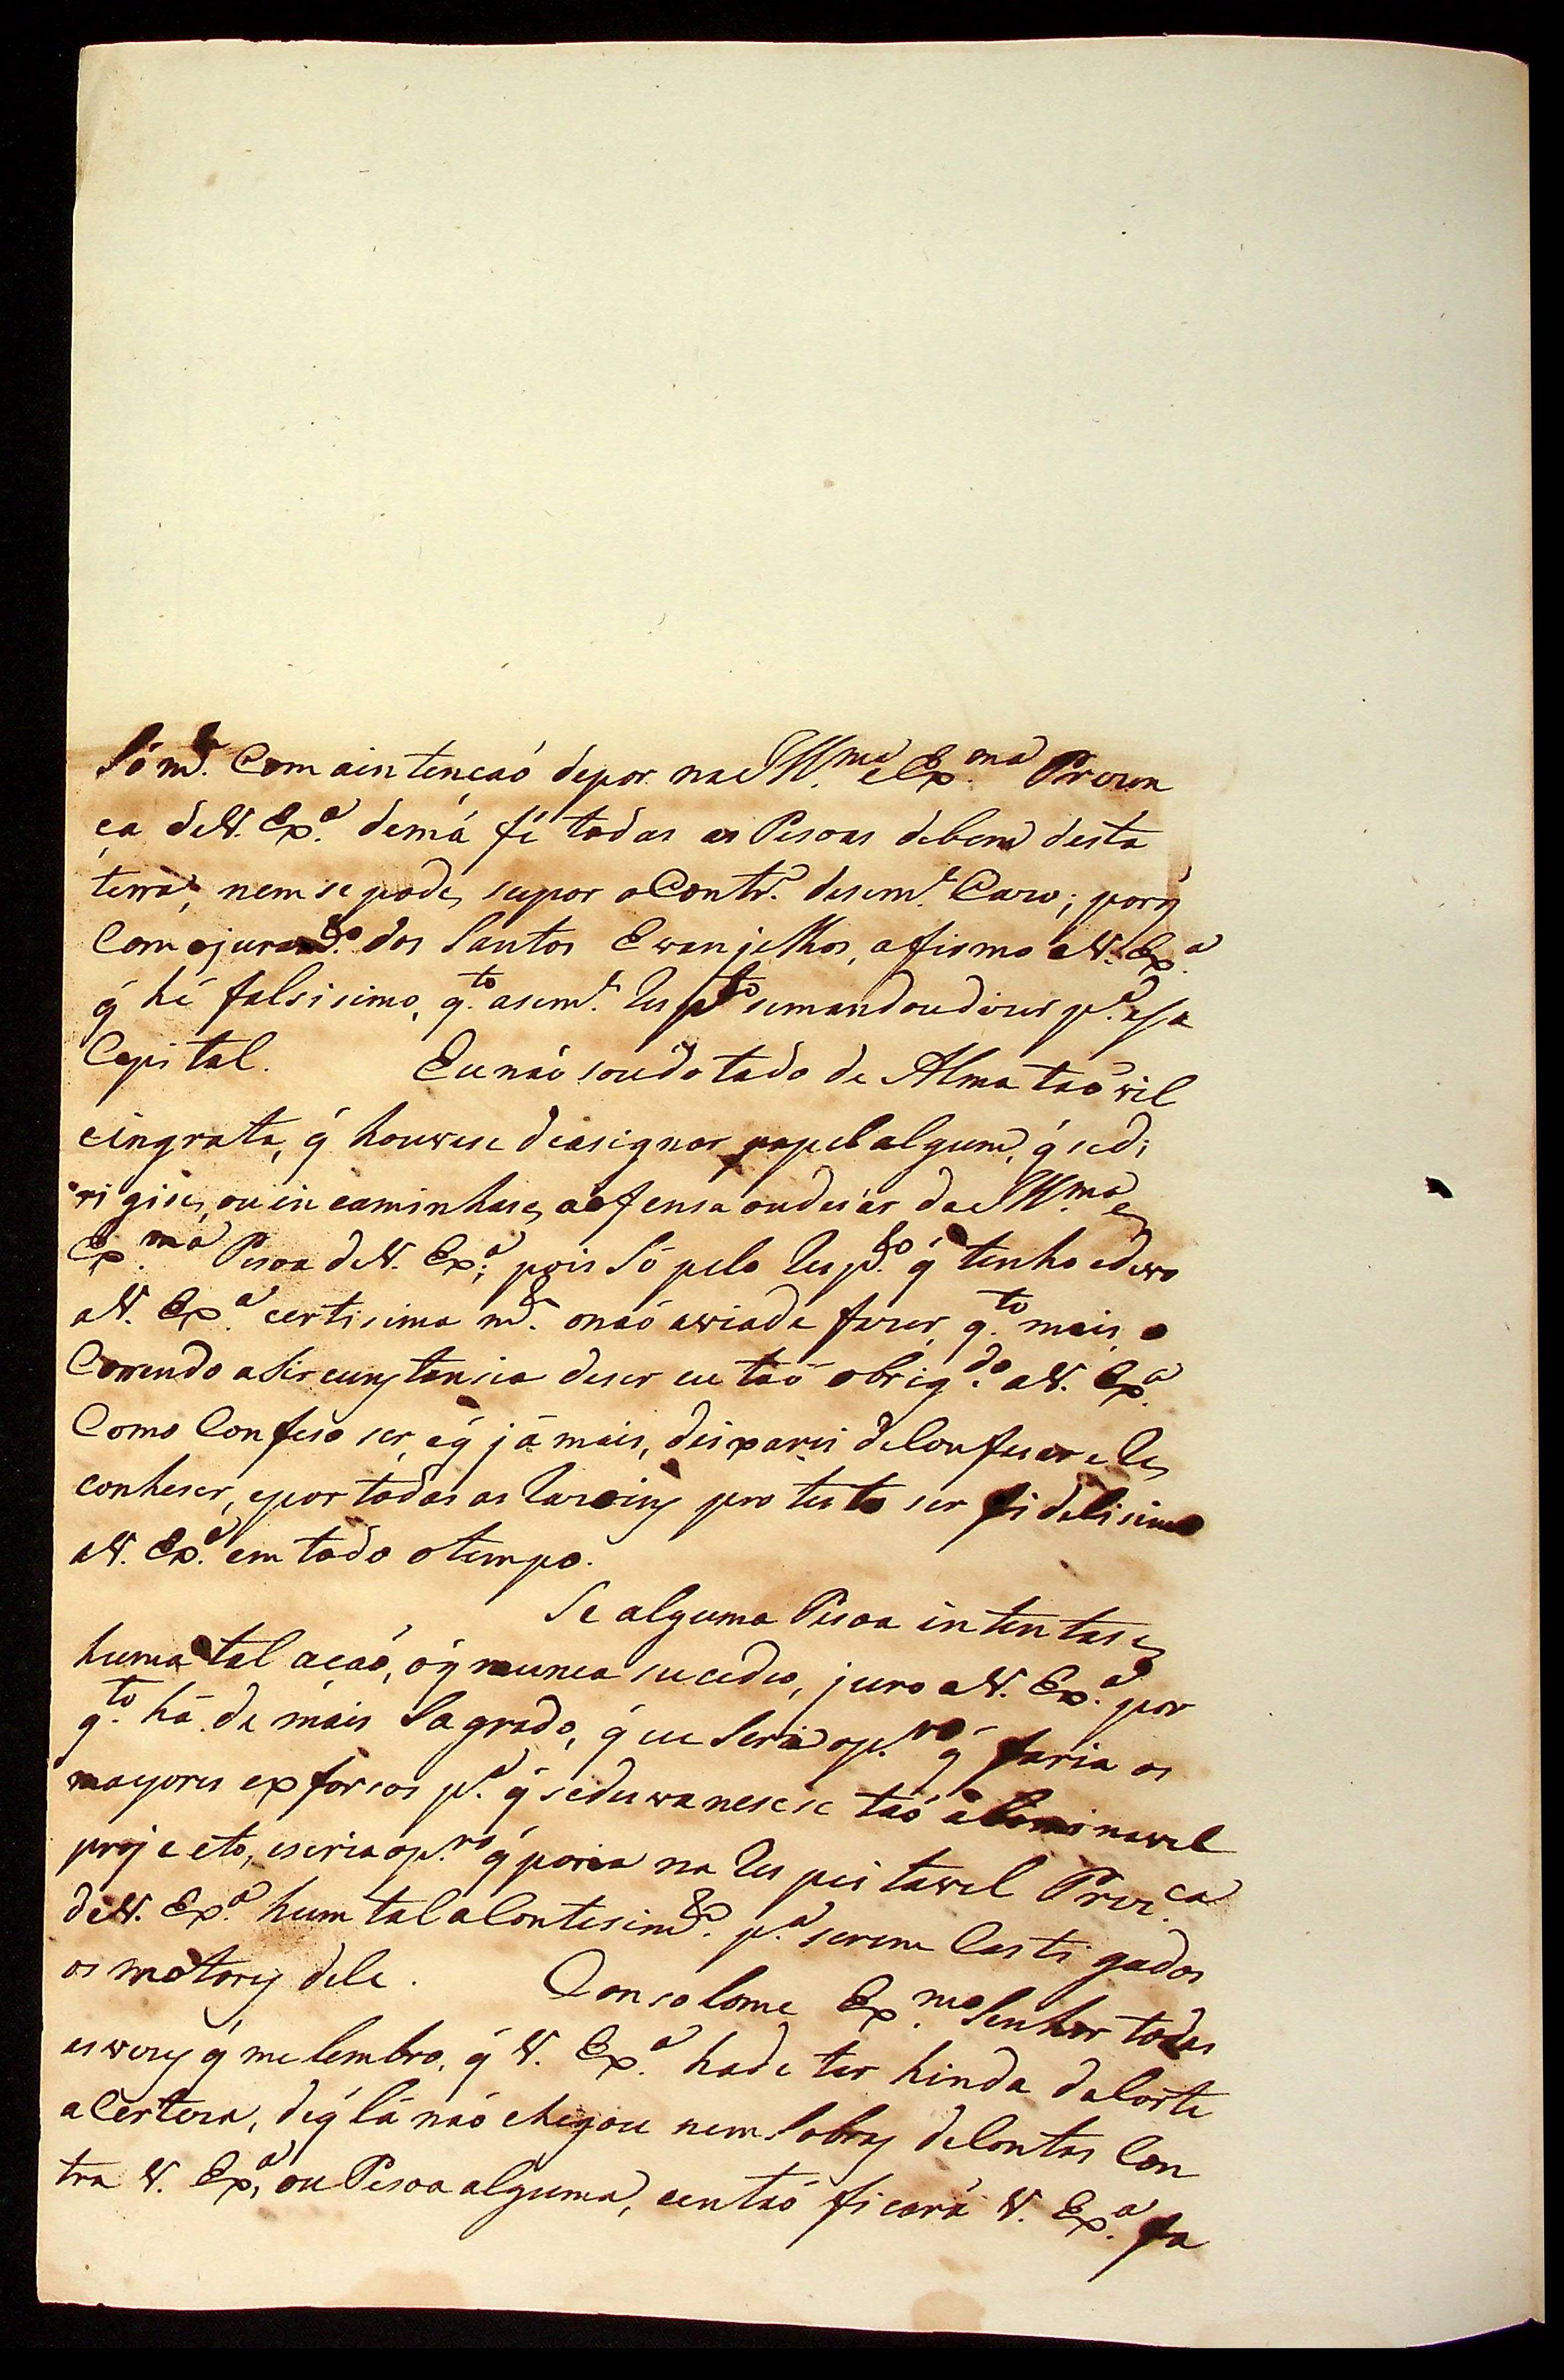 Sóm.te Com aintençaõ depor na Ill.ma e Ex.ma Prezen
ça deV. Ex.a demá fé todas as Pesoas debem desta
terra, nem se pode supor oContr.o desem.e Cazo; porq́
Com ojuram.to dos Santos Evanjelhos, afirmo aV. Ex.a
q́ hé falsisimo, q.to asem.e Resp.to semandou dizer p.a esa
Capital. Eu naõ sou dotado de Alma taõ vil
eingrata, q́ houvese deasignar papel algum, q́ sedi
rigise, ou incaminhase, aofensa oudesár da Ill.ma e
Ex.ma Pesoa deV. Ex.a; pois Só pelo Resp.to q́ tenho edevo
aV. Ex.a certisima m.te onaõ aviade fazer, q.to mais o
Correndo aSircunstansia deser eu taõ obrig.do aV. Ex.a
Como Confeso ser, eq́ já mais, deixarei deConfesar eRe
conheser, epor todas as Razoins protesto ser fidelisimo
aV. Ex.a em todo otempo.
Se alguma Pesoa intentase
huma tal açaõ, oq́ nunca sucedeo, juro aV. Ex.a por
q.to há de mais Sagrado, q́ eu Seria op.ro q́ faria os
mayores exforsos p.a q́ sedesvanesese taõ abominavel
projecto, eseria op.ro q́ poria na Respeitavel Prez.ca
deV. Ex.a hum tal aContesim.to p.a serem Castigados
os motores dele. Consolome Ex.mo Senhor todas
asvezes q́ me lembro, q́ V. Ex.a hade ter hinda daCorte
aCerteza, deq́ lá naõ chegou nem Sobras deContas Con
tra V. Ex.a, ou Pesoa alguma, eentaõ ficará V. Ex.a sa